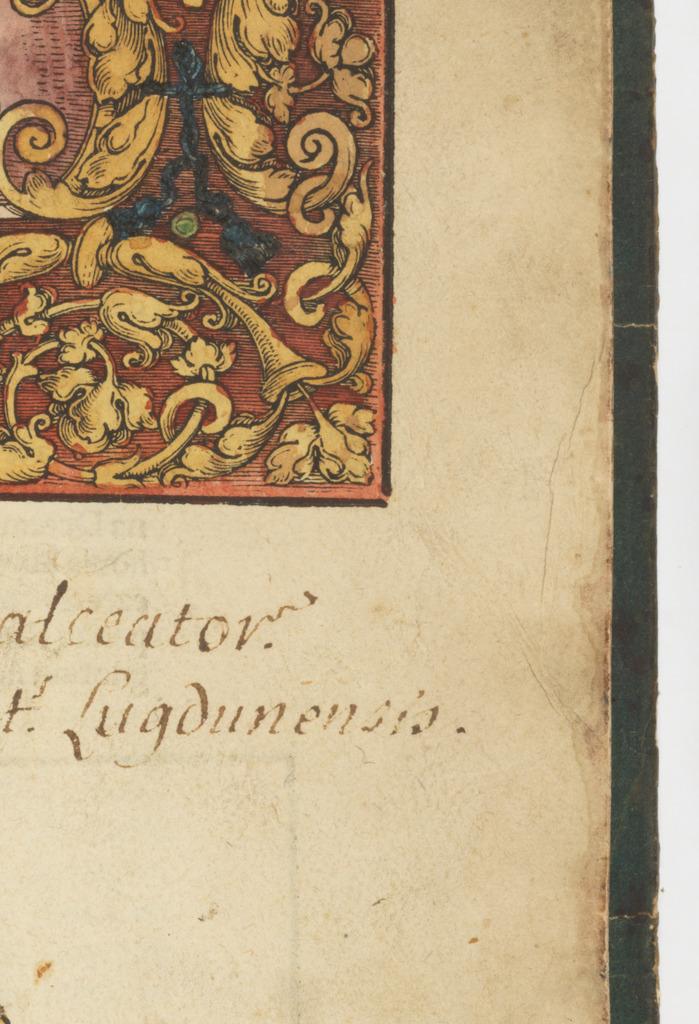 alceator.
t. Lugdunensis.